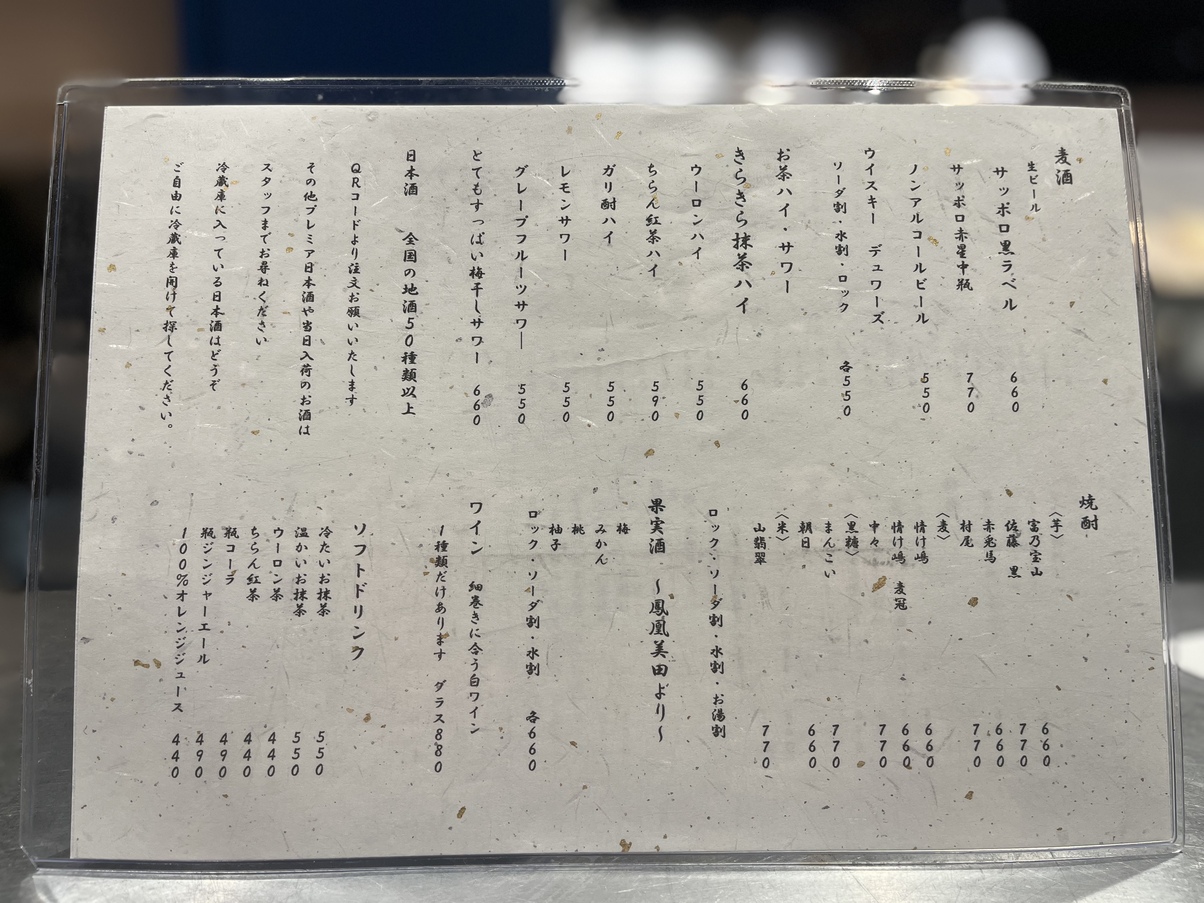 麦酒
生ビール
サッポロ黒ラベル 660
サッポロ赤星中瓶 770
ノンアルコールビール 550
ウイスキー デュワーズ
ソーダ割・水割・ロック 各550
お茶ハイ・サワー
きらきら抹茶ハイ 660
ウーロンハイ 550
ちらん紅茶ハイ 590
ガリ酎ハイ 550
レモンサワー 550
グレープフルーツサワー 550
とてもすっぱい梅干しサワー 660
日本酒 全国の地酒50種類以上
QRコードより注文お願いいたします
その他プレミア日本酒や当日入荷のお酒は
スタッフまでお尋ねください
冷蔵庫に入っている日本酒はどうぞ
ご自由に冷蔵庫を開けて探してください。
焼酎
〈芋〉
富乃宝山 660
佐藤 黒 770
赤兎馬 660
村尾 770
〈麦〉
情け嶋 660
情け嶋 麦冠 660
中々 770
〈黒糖〉
まんこい 770
朝日 660
〈米〉
山翡翠 770
ロック・ソーダ割・水割・お湯割
果実酒 〜鳳凰美田より〜
梅
みかん
桃
柚子
ロック・ソーダ割・水割 各660
ワイン 細巻きに合う白ワイン
1種類だけあります グラス880
ソフトドリンク
冷たいお抹茶 550
温かいお抹茶 550
ウーロン茶 440
ちらん紅茶 440
瓶コーラ 490
瓶ジンジャーエール 490
100%オレンジジュース 440